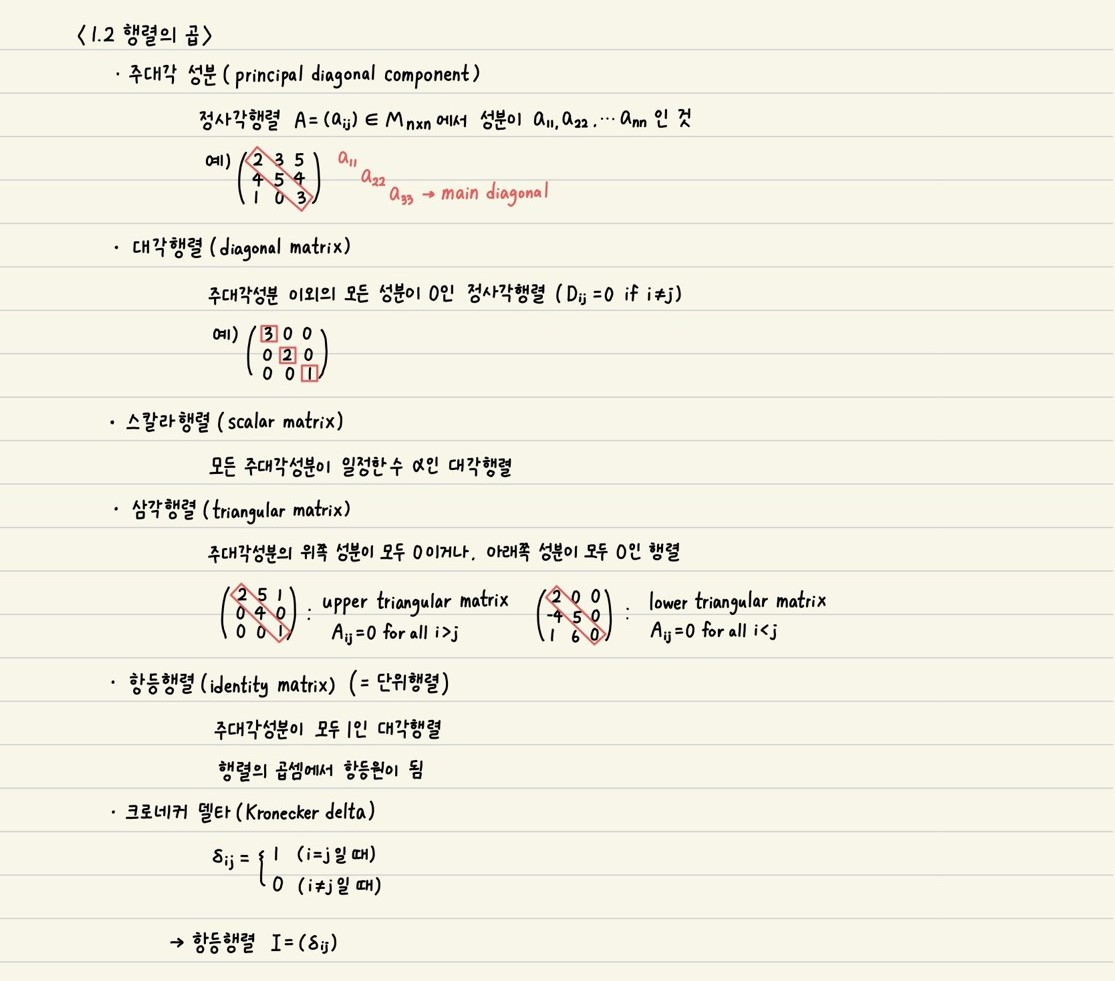 〈1.2 행렬의 곱〉
· 주대각 성분 (principal diagonal component)
정사각행렬 A=(aij) ∈ Mnxn 에서 성분이 a11, a22, ⋯ ann 인 것
예) (2 3 5 a11
4 5 4 a22
1 0 3) a33 → main diagonal
· 대각행렬 (diagonal matrix)
주대각성분 이외의 모든 성분이 0인 정사각행렬 (Dij =0 if i≠j)
예) (3 0 0
0 2 0
0 0 1)
· 스칼라행렬 (scalar matrix)
모든 주대각성분이 일정한수 α인 대각행렬
· 삼각행렬 (triangular matrix)
주대각성분의 위쪽 성분이 모두 0이거나, 아래쪽 성분이 모두 0인 행렬
(2 5 1 upper triangular matrix (2 0 0 lower triangular matrix
0 4 0 : -4 5 0 :
0 0 1) Aij=0 for all i>j 1 6 0) Aij=0 for all i<j
· 항등행렬 (identity matrix) (= 단위행렬)
주대각성분이 모두 1인 대각행렬
행렬의 곱셈에서 항등원이 됨
· 크로네커 델타 (Kronecker delta)
δij = { 1 (i=j일 때)
0 (i≠j일 때)
→ 항등행렬 I=(δij)